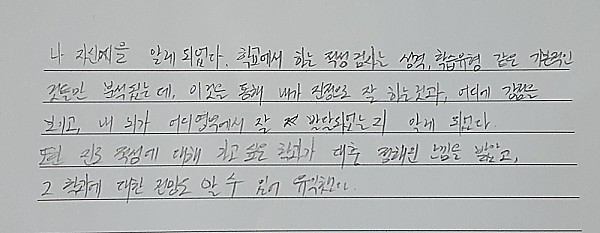 나 자신에를 알게 되었다. 학교에서 하는 적성검사는 성격, 학습유형 같은 기본적인
것들만 분석됬는데, 이것을 통해 내가 진정으로 잘 하는것과, 어디에 강점을
보이고, 내 뇌가 어디영역에서 잘 발달되었는지 알게 되었다.
또한 진로 적성에 대해 가고 싶은 학과가 대충 정해진 느낌을 받았고,
그 학과에 대한 전망도 알 수 있어 유익했다.